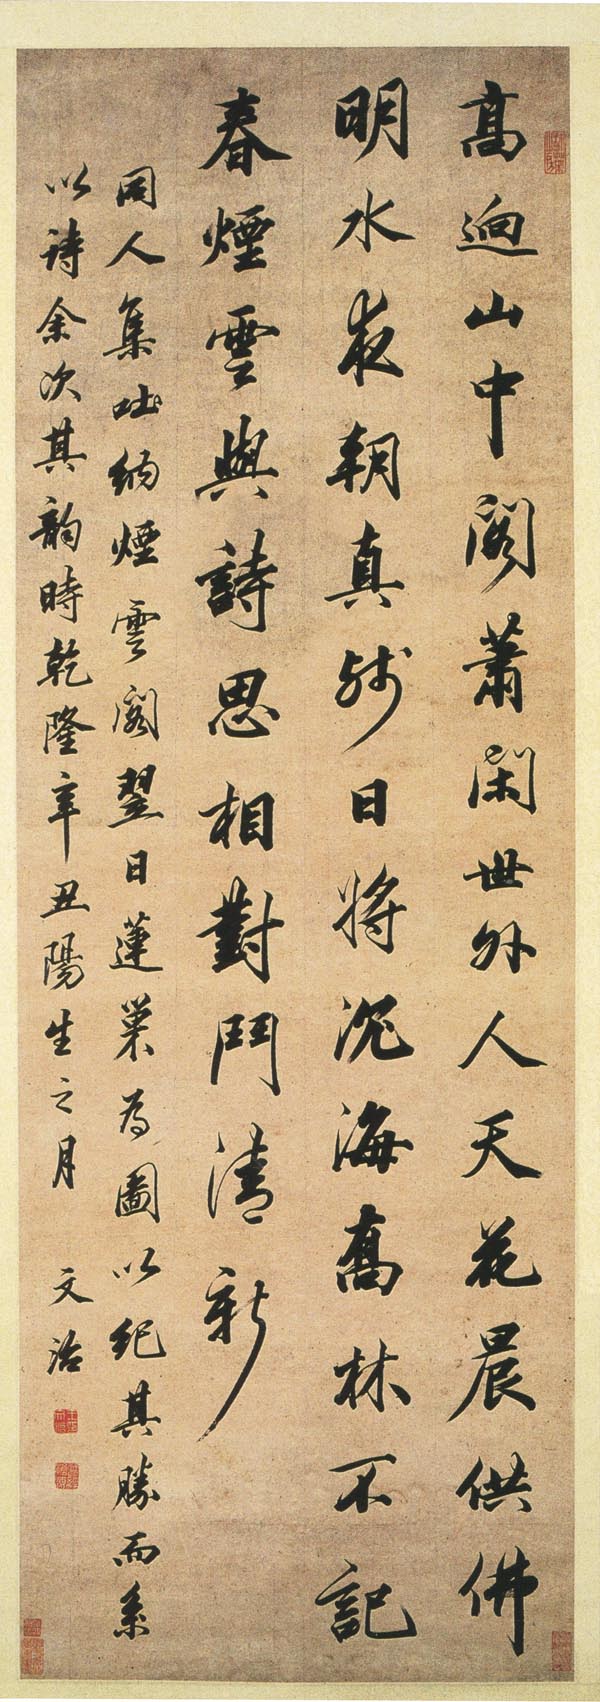 高迥山中閣蕭閑世外人天花晨供佛
明水夜朝真殘日將沉海喬林不記
春煙雲與詩思相對鬥清新
同人集吐納煙雲閣翌日蓮巢為圖以紀其勝而系
以詩余次其韵時乾隆辛丑陽生之月 文治